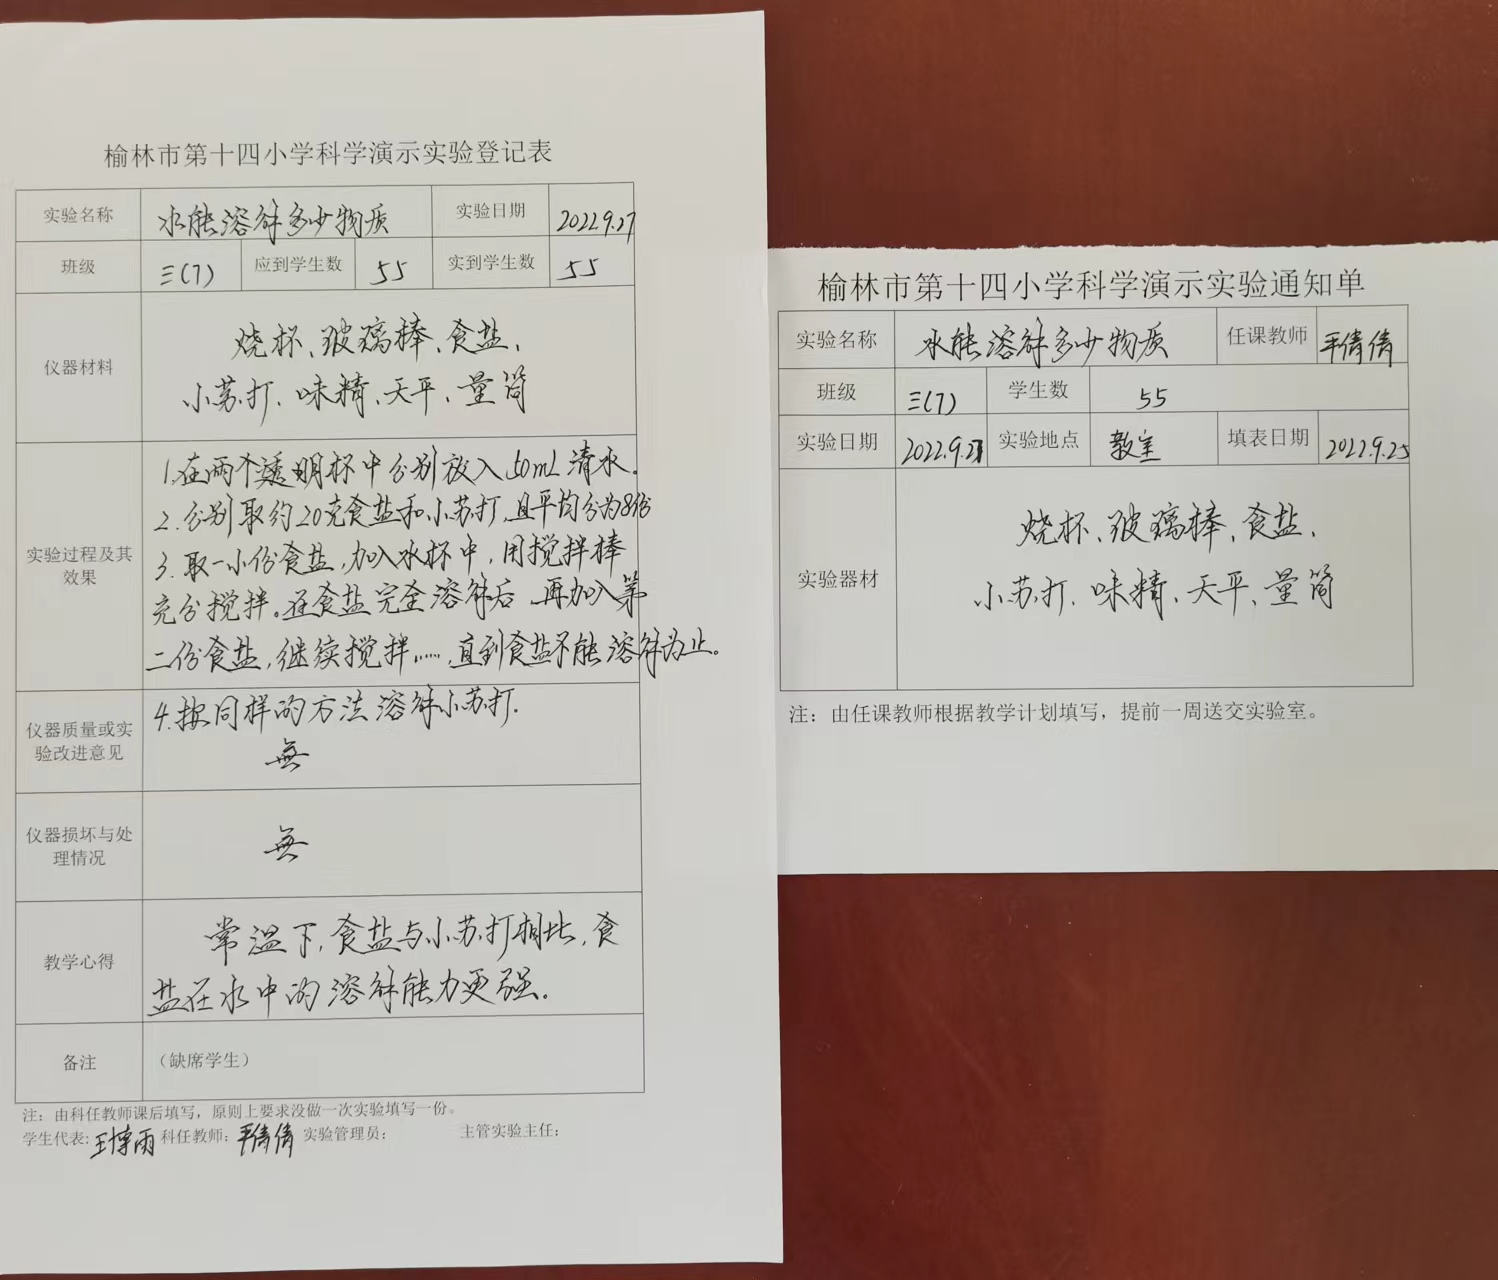 榆林市第十四小学科学演示实验登记表
实验名称 水能溶解多少物质 实验日期 2022.9.27
班级 三(7) 应到学生数 55 实到学生数 55
仪器材料
烧杯、玻璃棒、食盐、
小苏打、味精、天平、量筒
实验过程及其
效果
1.在两个透明杯中分别放入50mL清水。
2.分别取约20克食盐和小苏打,且平均分为8份
3.取一小份食盐,加入水杯中,用搅拌棒
充分搅拌。在食盐完全溶解后,再加入第
二份食盐,继续搅拌……直到食盐不能溶解为止。
4.按同样的方法溶解小苏打.
仪器质量或实
验改进意见
無
仪器损坏与处
理情况
無
教学心得
常温下,食盐与小苏打相比,食
盐在水中的溶解能力更强.
备注 （缺席学生）
注：由科任教师课后填写，原则上要求没做一次实验填写一份。
学生代表: 王博雨 科任教师: 倩倩 实验管理员: 主管实验主任:
榆林市第十四小学科学演示实验通知单
实验名称 水能溶解多少物质 任课教师 倩倩
班级 三(7) 学生数 55
实验日期 2022.9.27 实验地点 教室 填表日期 2022.9.25
实验器材
烧杯、玻璃棒、食盐、
小苏打、味精、天平、量筒
注：由任课教师根据教学计划填写，提前一周送交实验室。